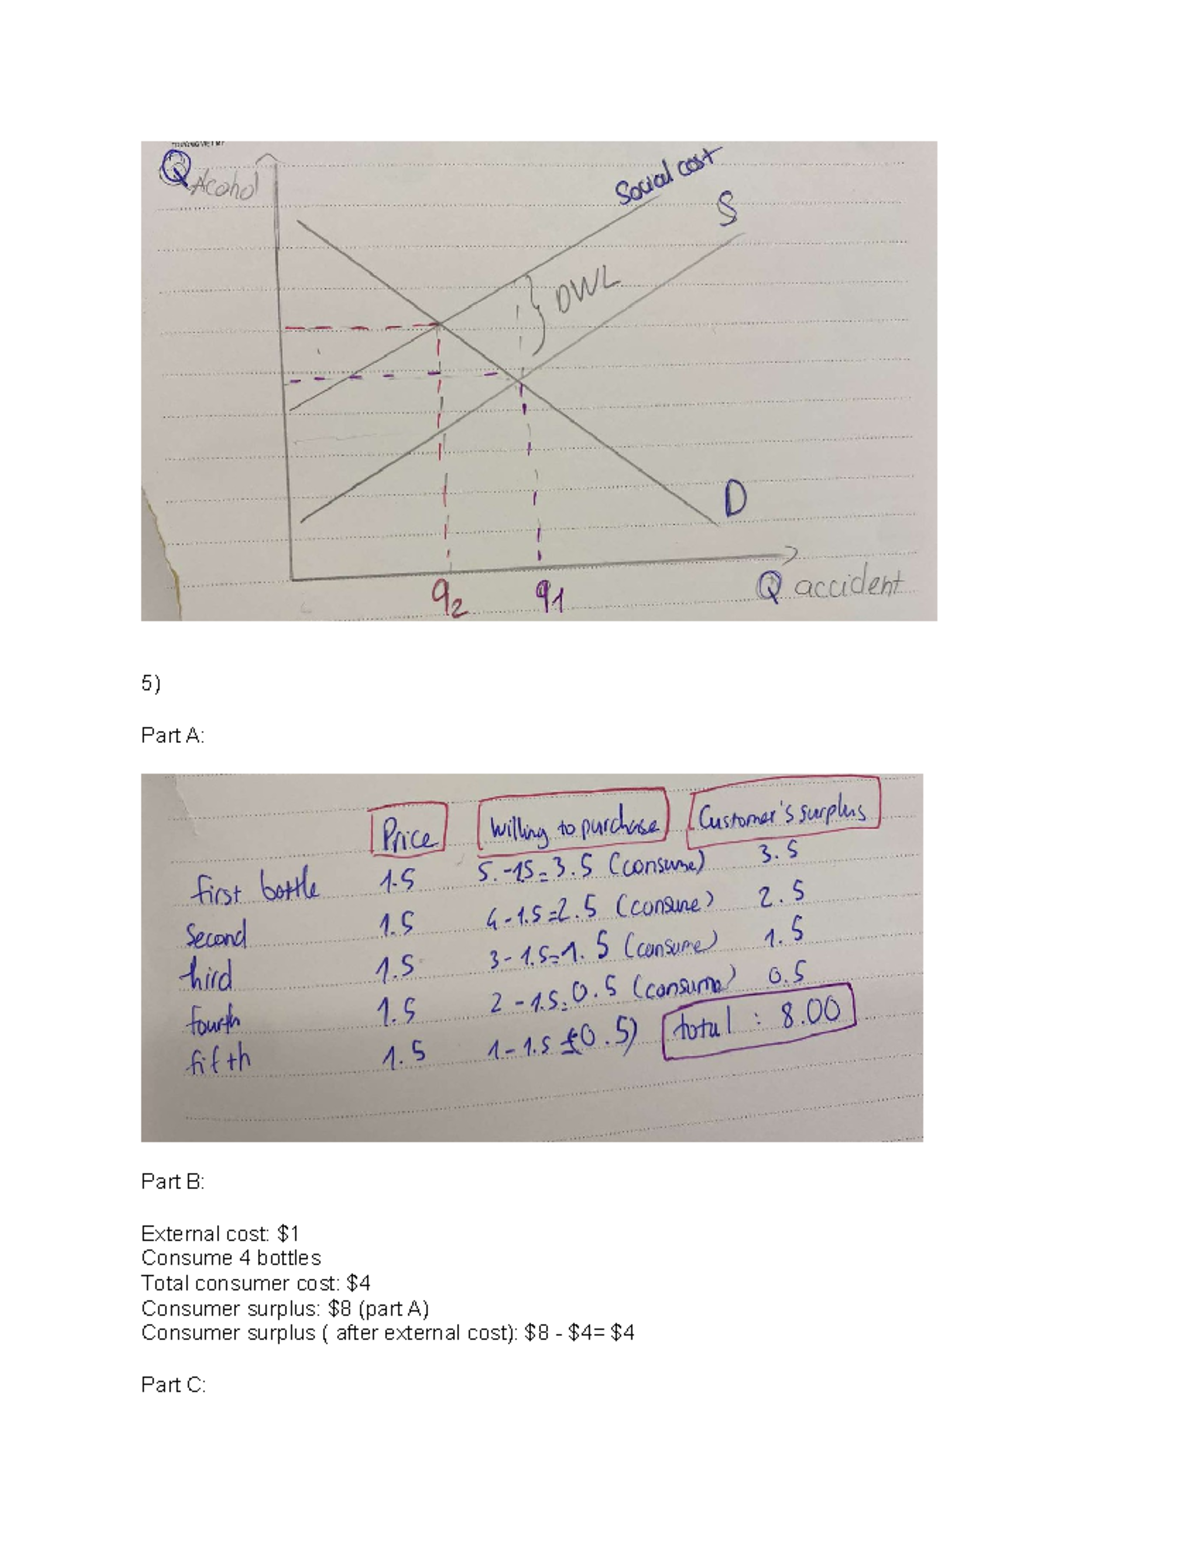 Q Acohol
Social cost
S
DWL
D
q2 q1 Q accident
5)
Part A:
Price Willing to purchase Customer's surplus
first bottle 1.5 5.-15=3.5 (consume) 3.5
Second 1.5 4-1.5=2.5 (consume) 2.5
third 1.5 3-1.5=1.5 (consume) 1.5
fourth 1.5 2-1.5=0.5 (consume) 0.5
fifth 1.5 1-1.5 0.5) total: 8.00
Part B:
External cost: $1
Consume 4 bottles
Total consumer cost: $4
Consumer surplus: $8 (part A)
Consumer surplus ( after external cost): $8 - $4= $4
Part C: